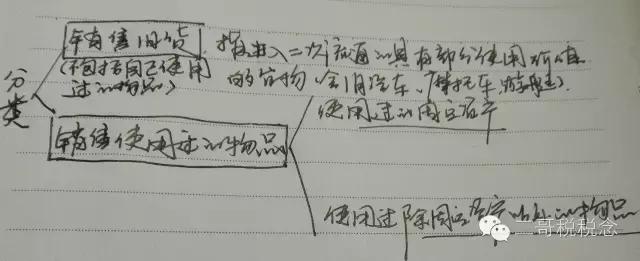 分类
销售旧货
(不包括自己使用
过的物品)
指进入二次流通的具有部分使用价值
的货物,含旧汽车、摩托车、游艇)
销售使用过的物品
使用过的固定资产
使用过除固定资产以外的物品
一哥税税念